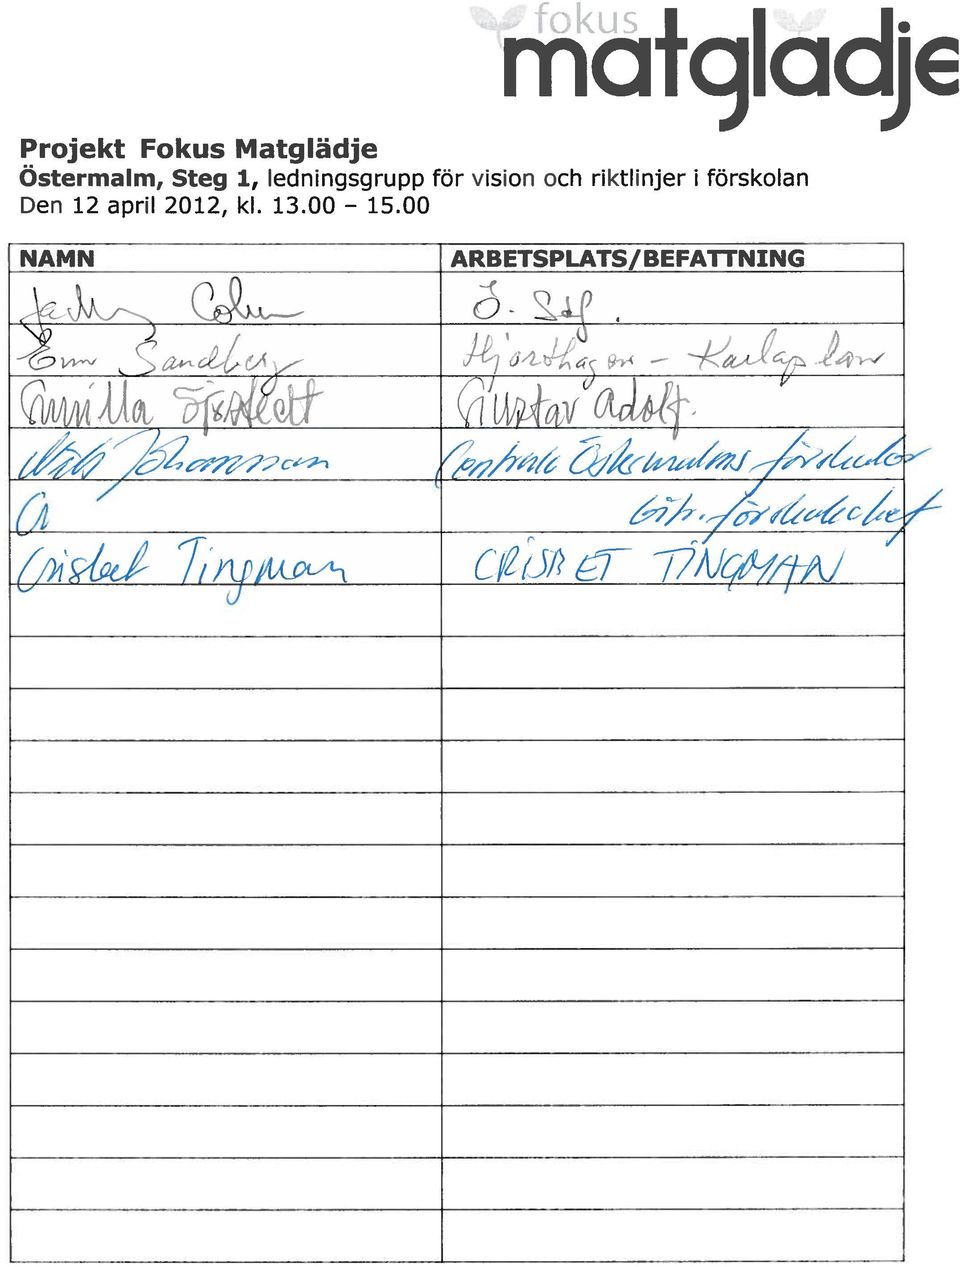 fokus
matglädje
Projekt Fokus Matglädje
Östermalm, Steg 1, ledningsgrupp för vision och riktlinjer i förskolan
Den 12 april 2012, kl. 13.00 – 15.00
NAMN ARBETSPLATS/BEFATTNING
Ö.
Sandberg Hjorthagen – Karlaplan
Gunilla Sjöstedt Gustav Adolf.
Johannson Centrala Östermalms förskolor
bitr. förskolechef
Crisbet Tingman CRISBET TINGMAN